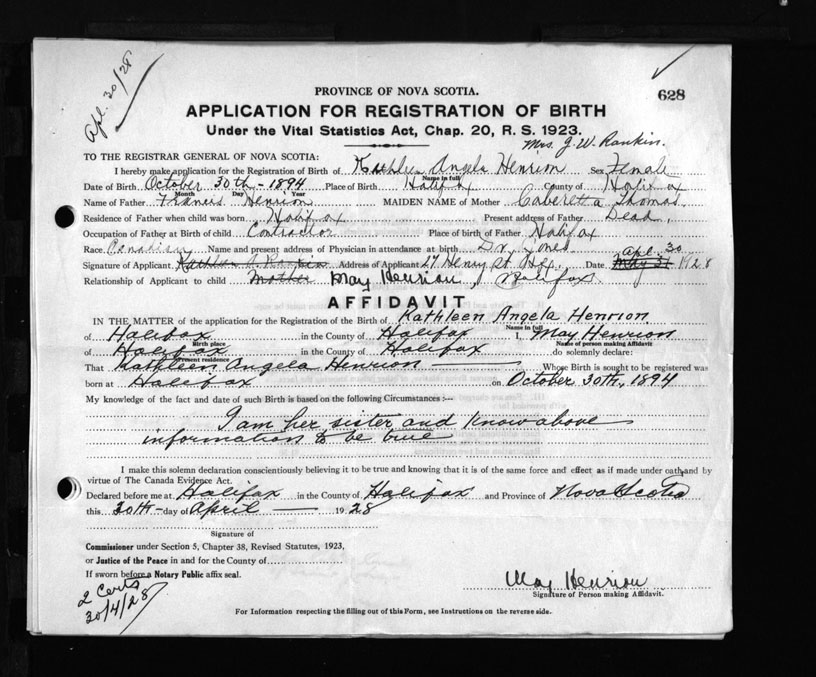 Apl. 30/28
PROVINCE OF NOVA SCOTIA.
628
APPLICATION FOR REGISTRATION OF BIRTH
Under the Vital Statistics Act, Chap. 20, R. S. 1923.
Mrs. J. W. Rankin.
TO THE REGISTRAR GENERAL OF NOVA SCOTIA:
I hereby make application for the Registration of Birth of Kathleen Angela Henrion Sex Female
Name in full
Date of Birth October 30th - 1894 Place of Birth Halifax County of Halifax
Month Day Year
Name of Father Francis Henrion MAIDEN NAME of Mother Caberetta Thomas
Residence of Father when child was born Halifax Present address of Father Dead,
Occupation of Father at Birth of child Contractor Place of birth of Father Halifax
Race Canadian Name and present address of Physician in attendance at birth Dr. Jones
Apl. 30
Signature of Applicant Kathleen A. Rankin Address of Applicant 27 Henry St Hfx. Date May 31 1928
Relationship of Applicant to child mother May Henrion, Halifax.
AFFIDAVIT
IN THE MATTER of the application for the Registration of the Birth of Kathleen Angela Henrion
Name in full
of Halifax in the County of Halifax I, May Henrion
Birth place Name of person making Affidavit
of Halifax in the County of Halifax do solemnly declare:
Present residence
That Kathleen Angela Henrion Whose Birth is sought to be registered was
born at Halifax on October 30th, 1894
My knowledge of the fact and date of such Birth is based on the following Circumstances:—
I am her sister and know above
information to be true
I make this solemn declaration conscientiously believing it to be true and knowing that it is of the same force and effect as if made under oath and by
virtue of The Canada Evidence Act.
Declared before me at Halifax in the County of Halifax and Province of Nova Scotia
this 30th day of April 1928
Signature of
Commissioner under Section 5, Chapter 38, Revised Statutes, 1923,
or Justice of the Peace in and for the County of
If sworn before a Notary Public affix seal.
2 Certs
30/4/28
May Henrion
Signature of Person making Affidavit.
For Information respecting the filling out of this Form, see Instructions on the reverse side.